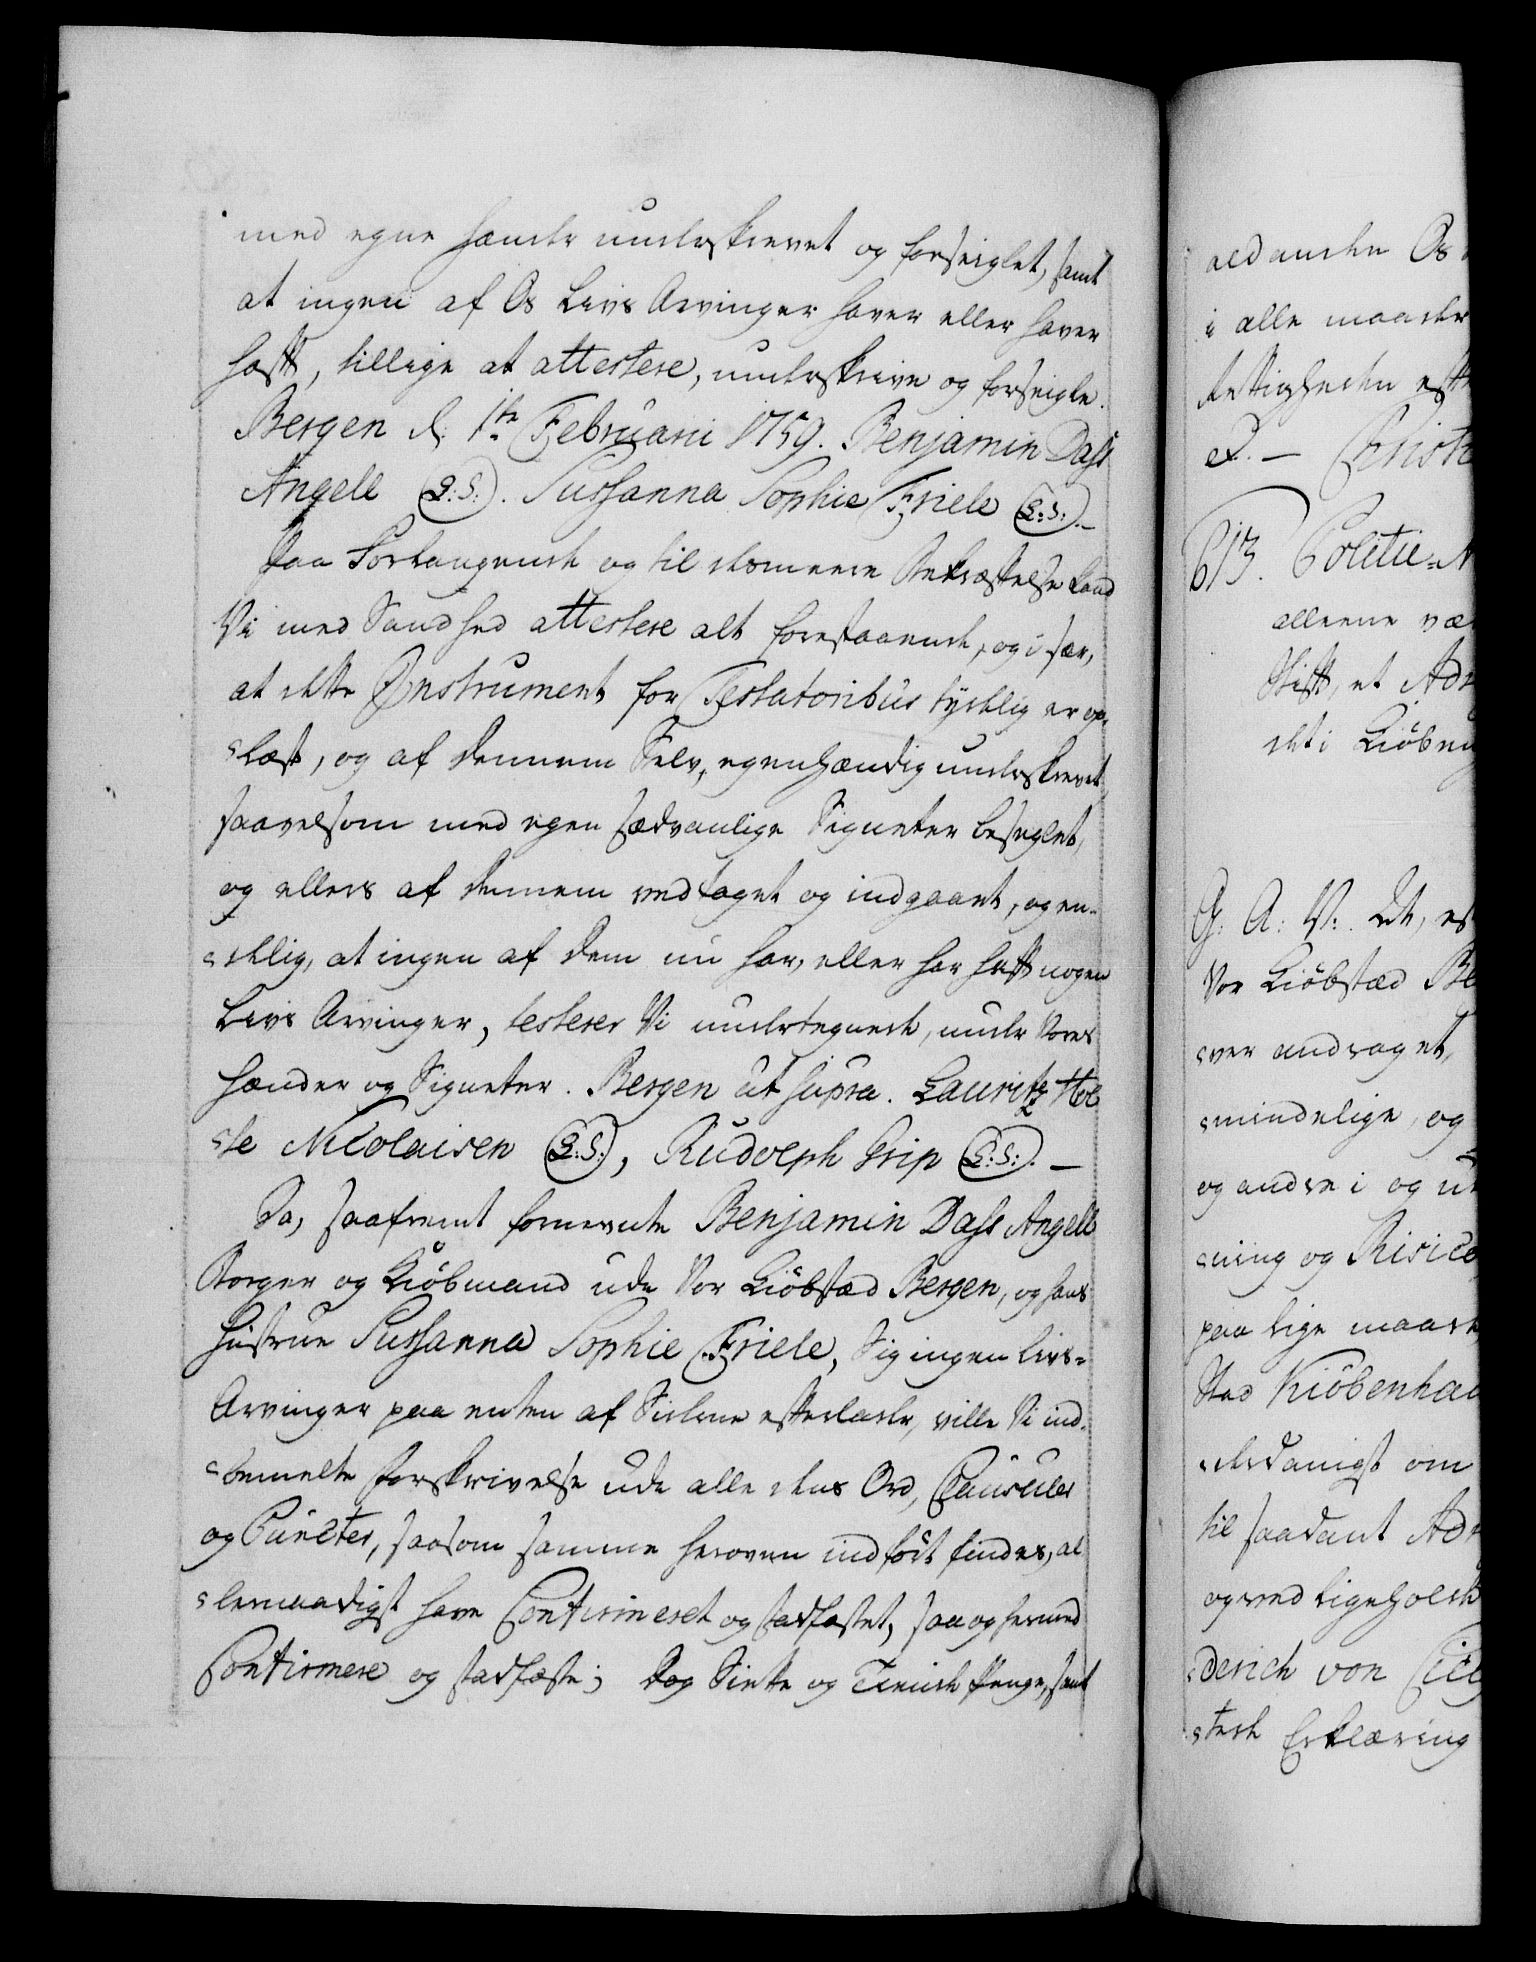 med egne Hænder underskrevet og forseiglet, samt
at ingen af Os Livs Arvinger haver eller haver
hafft, tillige at attestere, underskrive og forseigle.
Bergen d. 1te Februarii 1759. Benjamin Dass
Angell (L:S:). Sussanna Sophie Friele (L:S:).—
Paa Forlangende og til desmeere Bekræftelse kand
Vi med Sandhed attestere alt forestaaende, og i sær,
at dette Instrument for Testatoribus tydelig er op-
læst, og af dennem Selv, egenhændig underskrevet
saavelsom med egen sædvanlige Signeter beseglet,
og ellers af dennem vedtaget og indgaaet, og en-
delig, at ingen af dem nu har, eller har hafft nogen
Livs Arvinger, testerer Vi undertegnede, under Vores
Hænder og Signeter. Bergen ut supra. Lauritz Hol
te Nicolaisen (L:S:), Rudolph Grip (L:S:).—
Da, saafremt fornevnte Benjamin Dass Angell
Borger og Kiöbmand udi Vor Kiöbstæd Bergen, og hans
Hustrue Sussanna Sophie Friele, Sig ingen Livs-
Arvinger paa enten af Siderne efterlader, ville Vi ind-
bemelte Forskrivelse udi alle dens Ord, Clausuler
og Puncter, saasom samme heroven indfört findes, al
lernaadigst have Confirmeret og stadfæstet, saa og hermed
Confirmere og stadfæste; Dog Siette og Tiende Penge, samt
ald anden Os
i alle maader
Rettigheder efft
P. — Christ
613. Politie-
alleene væ
Stifft, et Adr
det i Kiöben
G. A: V:. At, es
Vor Kiöbstæd Be
ver andraget,
mindelige, og
og andre i og u
ning og Risico
paa lige maade
Stad Kiöbenhav
derdanigst om
til saadant Adr
og ved ligeholde
derich von Cic
tede Erklæring